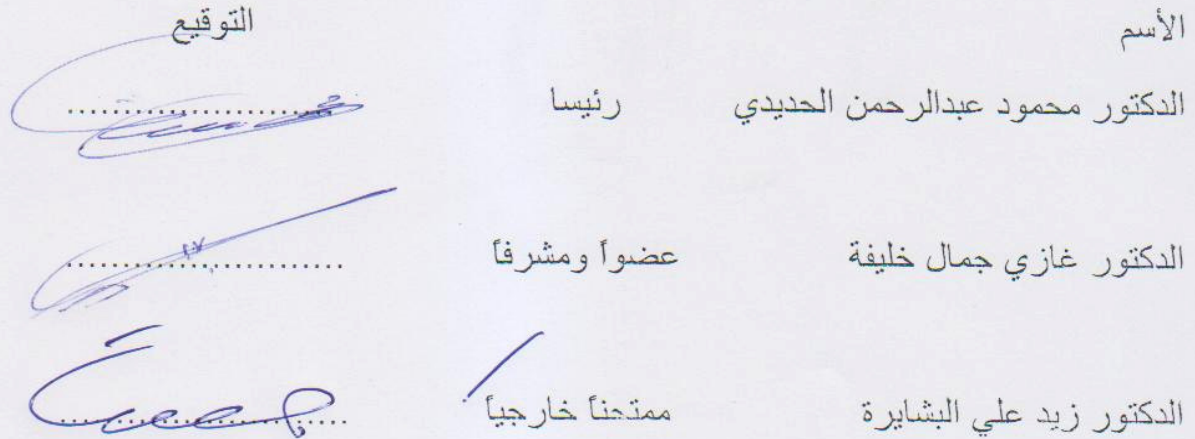 الأسم التوقيع
الدكتور محمود عبدالرحمن الحديدي رئيسا ....................
الدكتور غازي جمال خليفة عضواً ومشرفاً ....................
الدكتور زيد علي البشايرة ممتحناً خارجياً ....................